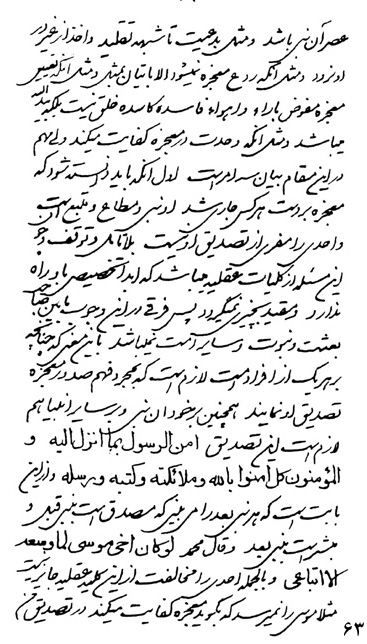 عصر آن نبی باشد و مثل بدعیت تا شبهه تقلید و اخذ از غیر در
او نرود و مثل آنکه ردع معجزه نمیشود الا باتیان بمثل و مثل آنکه تعیین
معجزه مفوض باراء و اهواء فاسده کاسده خلق نیست بلکه بید الله
میباشد و مثل آنکه وحدت در معجزه کفایت میکند ولی مهم
در این مقام بیان سه امر است اول آنکه باید دانسته شود که
معجزه بر دست هر کس جاری شد او نبی و مطاع و متبع است
واحدی را مفری از تصدیق او نیست بلا تأمل و توقف و
این مسئله از کلیات عقلیه میباشد که ابدا تخصیص باو راه
ندارد و مقید بچیزی نمیگردد پس فرقی در این وجوب ما بین
بعثت و نبوت و سایر امت نمیباشد باین معنی که چنانچه
بر هر یک از افراد امت لازم است که بمجرد فهم صدور معجزه
تصدیق او نمایند همچنین بر خود آن نبی و بر سایر انبیا هم
لازم است این تصدیق امن الرسول بما انزل الیه و
المؤمنون کل امنوا بالله و ملائکته و کتبه و رسله و از این
بابت است که هر نبی بعد را می بینی که مصدق است بنبی قبل و
مبشر است بنبی بعد و قال محمد لو کان اخی موسی لما وسعه
الا اتباعی و بالجمله احدی را مخالفت از این کلیه عقلیه جایز نیست
مثلا موسی را نمیرسد که بگوید معجزه کفایت میکند در تصدیق من
۶۳